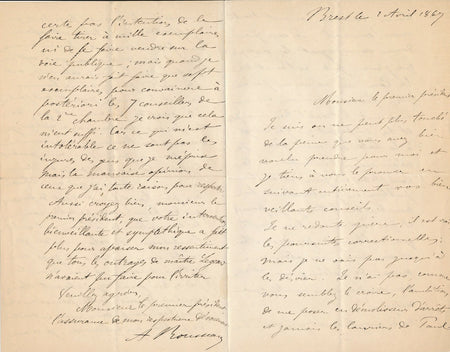 Brest le 2 Avril 1867
Monsieur le premier président
Je suis on ne peut plus touché
de la peine que vous avez bien
voulu prendre pour moi et
je tiens à vous le prouver en
suivant entièrement vos bien
veillants conseils.
Je ne redoute guère, il est vrai
les poursuites correctionnelles;
mais je ne vais pas jusqu'à
les désirer. Je n'ai pas comme
vous semblez le croire, l'ambition
de me poser en démolisseur d'arrêts
et jamais les lauriers de Paul
certe pas l'intention de la
faire tirer à mille exemplaires
ni de la faire vendre sur la
voie publique; mais quand je
n'en aurais fait faire que sept
exemplaires, pour convaincre à
postériori les 7 conseillers de
la 2me chambre je crois que cela
m'eut suffi. Car ce qui m'est
intolérable ce ne sont pas les
injures des gens que je méprise
mais la mauvaise opinion de
ceux que j'ai toute raison pour respecter
Aussi croyez bien, monsieur le
premier président, que votre
bienveillante et sympathique a fait
plus pour apaiser mon ressentiment
que tous les outrages de maître
n'avaient pu faire pour l'irriter
Veuillez agréer
Monsieur le premier président
l'assurance de mon respectueux
A Rousseau